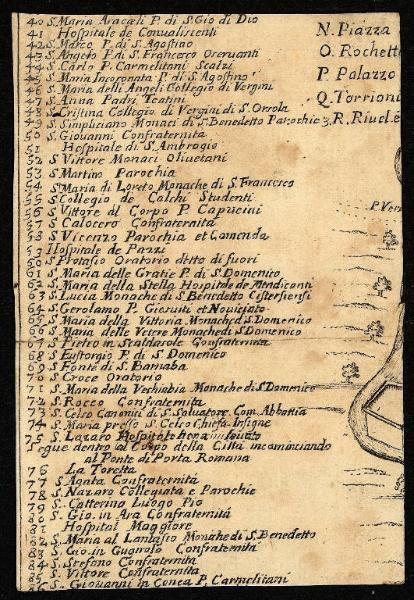 40 S. Maria Aracæli P. di S. Gio di Dio
41 Hospitale de Conualiscenti
42 S. Marco P. di S. Agostino
43 S. Angelo P. di S. Francesco Oseruanti
44 S. Carlo P. Carmelitani Scalzi
45 S. Maria Incoronata P. di S. Agostino
46 S. Maria delli Angeli Collegio di Vergini
47 S. Anna Padri Teatini
48 S. Cristina Collegio di Vergini di S. Orsola
49 S. Simpliciano Monaci di S. Benedetto Parochie 3.
50 S. Giouanni Confraternita
51 Hospitale di S. Ambrogio
52 S Vittore Monaci Oliuetani
53 S. Martino Parochia
54 S. Maria di Loreto Monache di S. Francesco
55 S. Collegio de Calchi Studenti
56 S. Vittore al Corpo P. Capucini
57 S. Calocero Confraternità
58 S Vicenzo Parochia et Comenda
59 Hospitale de Pazzi
60 S. Protasio Oratorio ditto di fuori
61 S. Maria delle Gratie P. di S. Domenico
62 S. Maria della Stella Hospitale de Mendiconti
63 S. Lucia Monache di S. Benedetto Cistersiensi
64 S. Gerolamo P. Giesuiti et Nouiciato
65 S. Maria della Vittoria Monache d. S. Domenico
66 S. Maria delle Vetere Monache di S. Domenico
67 S. Pietro in Scaldasole Confraternità
68 S. Eustorgio P. di S. Domenico
69 S. Fonte di S. Barnaba
70 S. Croce Oratorio
71 S. Maria della Vechiabia Monache di S. Domenico
72 S. Rocco Confraternità
73 S. Celso Canonici di S. Saluatore Com. Abbattia
74 S. Maria presso S. Celso Chiesa Insigne
75 S. Lazaro Hospitale
Segue dentro al Corpo della Città incominciando
al Ponte di Porta Romana
76 La Toretta
77 S. Agata Confraternità
78 S. Nazaro Collegiata e Parochie
79 S. Catterina Luogo Pio
80 S. Gio. in Ara Confraternità
81 Hospital Maggiore
82 S. Maria al Lantasio Monache di S. Benedetto
83 S. Gio. in Gugirolo Confraternità
84 S. Stefano Confraternità
85 S. Vittore Confraternità
86 S. Giouanni in Conca P. Carmelitani
N. Piazza
O. Rochett
P. Palazzo
Q. Torrioni
R. Riuel
P Ver